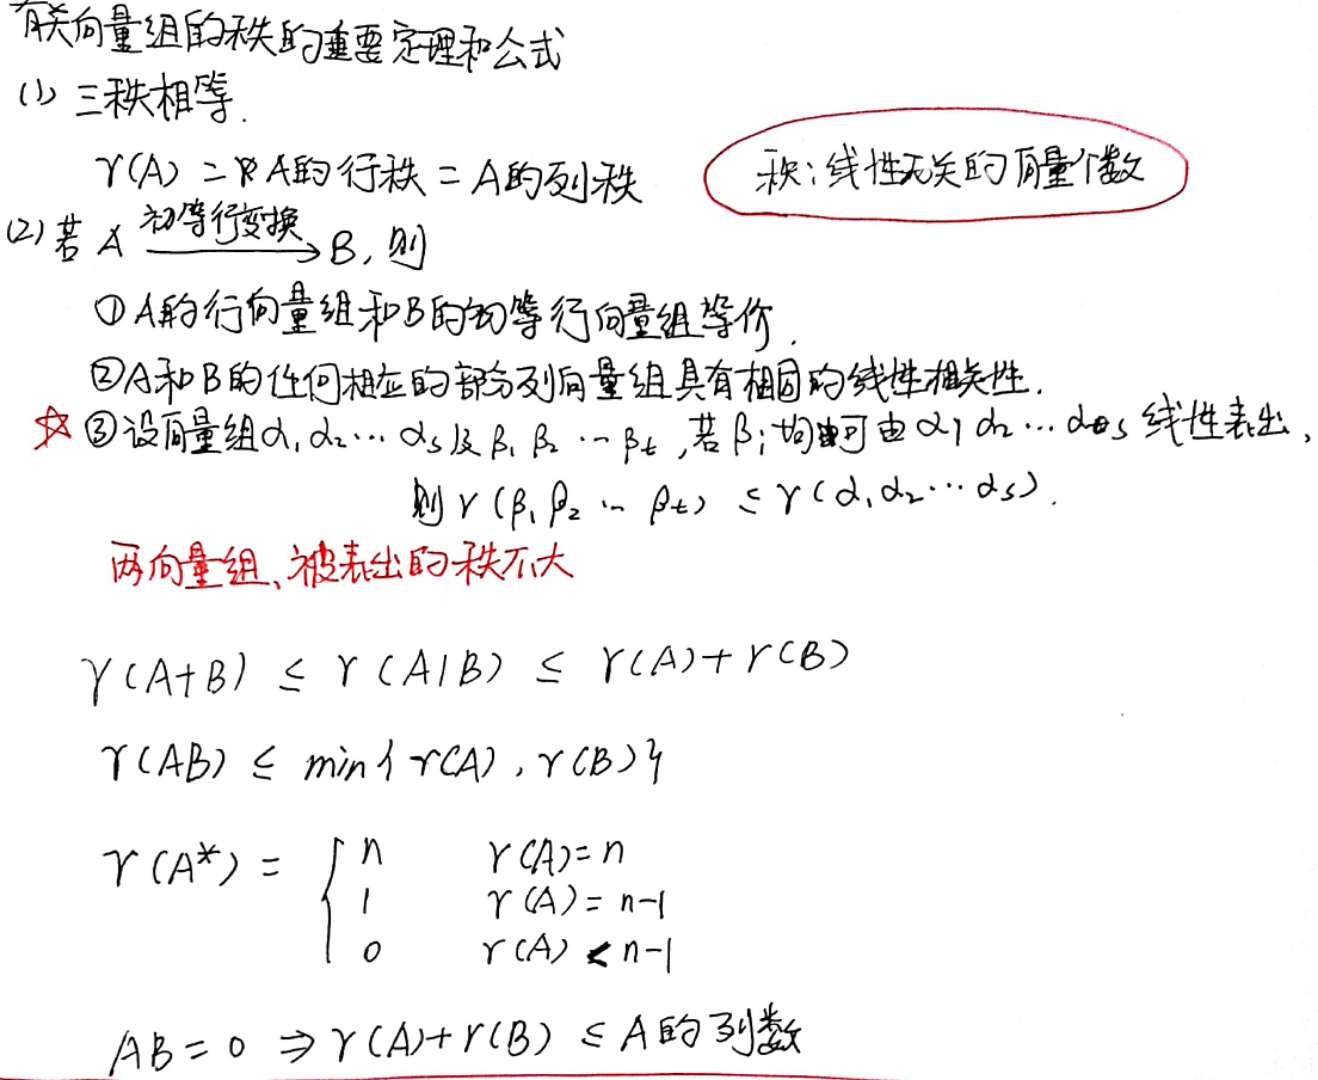 有关向量组的秩的重要定理和公式
(1) 三秩相等.
r(A) = A的行秩 = A的列秩
秩:线性无关的向量个数
(2) 若 A 初等行变换→ B, 则
① A的行向量组和B的初等行向量组等价.
② A和B的任何相应的部分列向量组具有相同的线性相关性.
☆ ③ 设向量组α₁,α₂…αs及β₁ β₂…βt,若βi均可由α₁ α₂…αs线性表出,
则 r(β₁ β₂…βt) ≤ r(α₁α₂…αs).
两向量组、被表出的秩不大
r(A+B) ≤ r(A|B) ≤ r(A)+r(B)
r(AB) ≤ min{r(A), r(B)}
r(A*) = { n r(A)=n
1 r(A)=n-1
0 r(A)<n-1
AB=0 ⇒ r(A)+r(B) ≤ A的列数